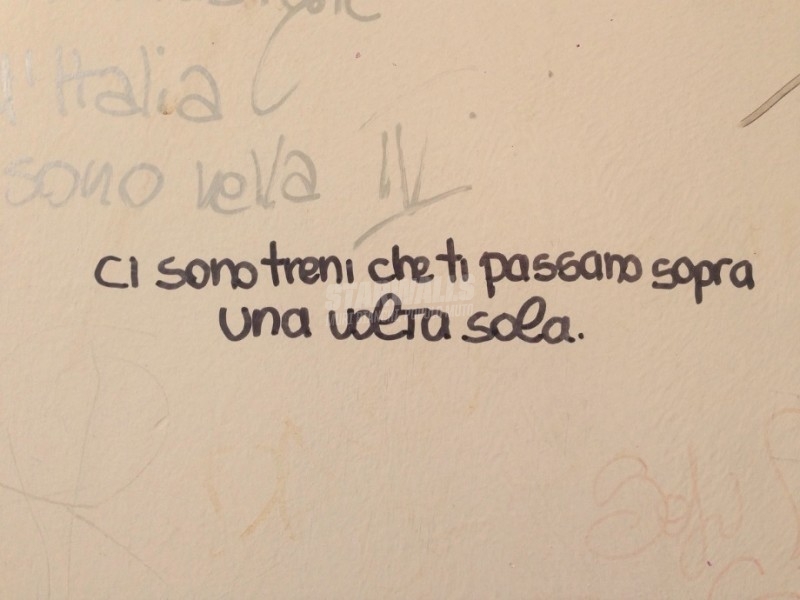 l'Italia
sono nella IV
ci sono treni che ti passano sopra
una volta sola.